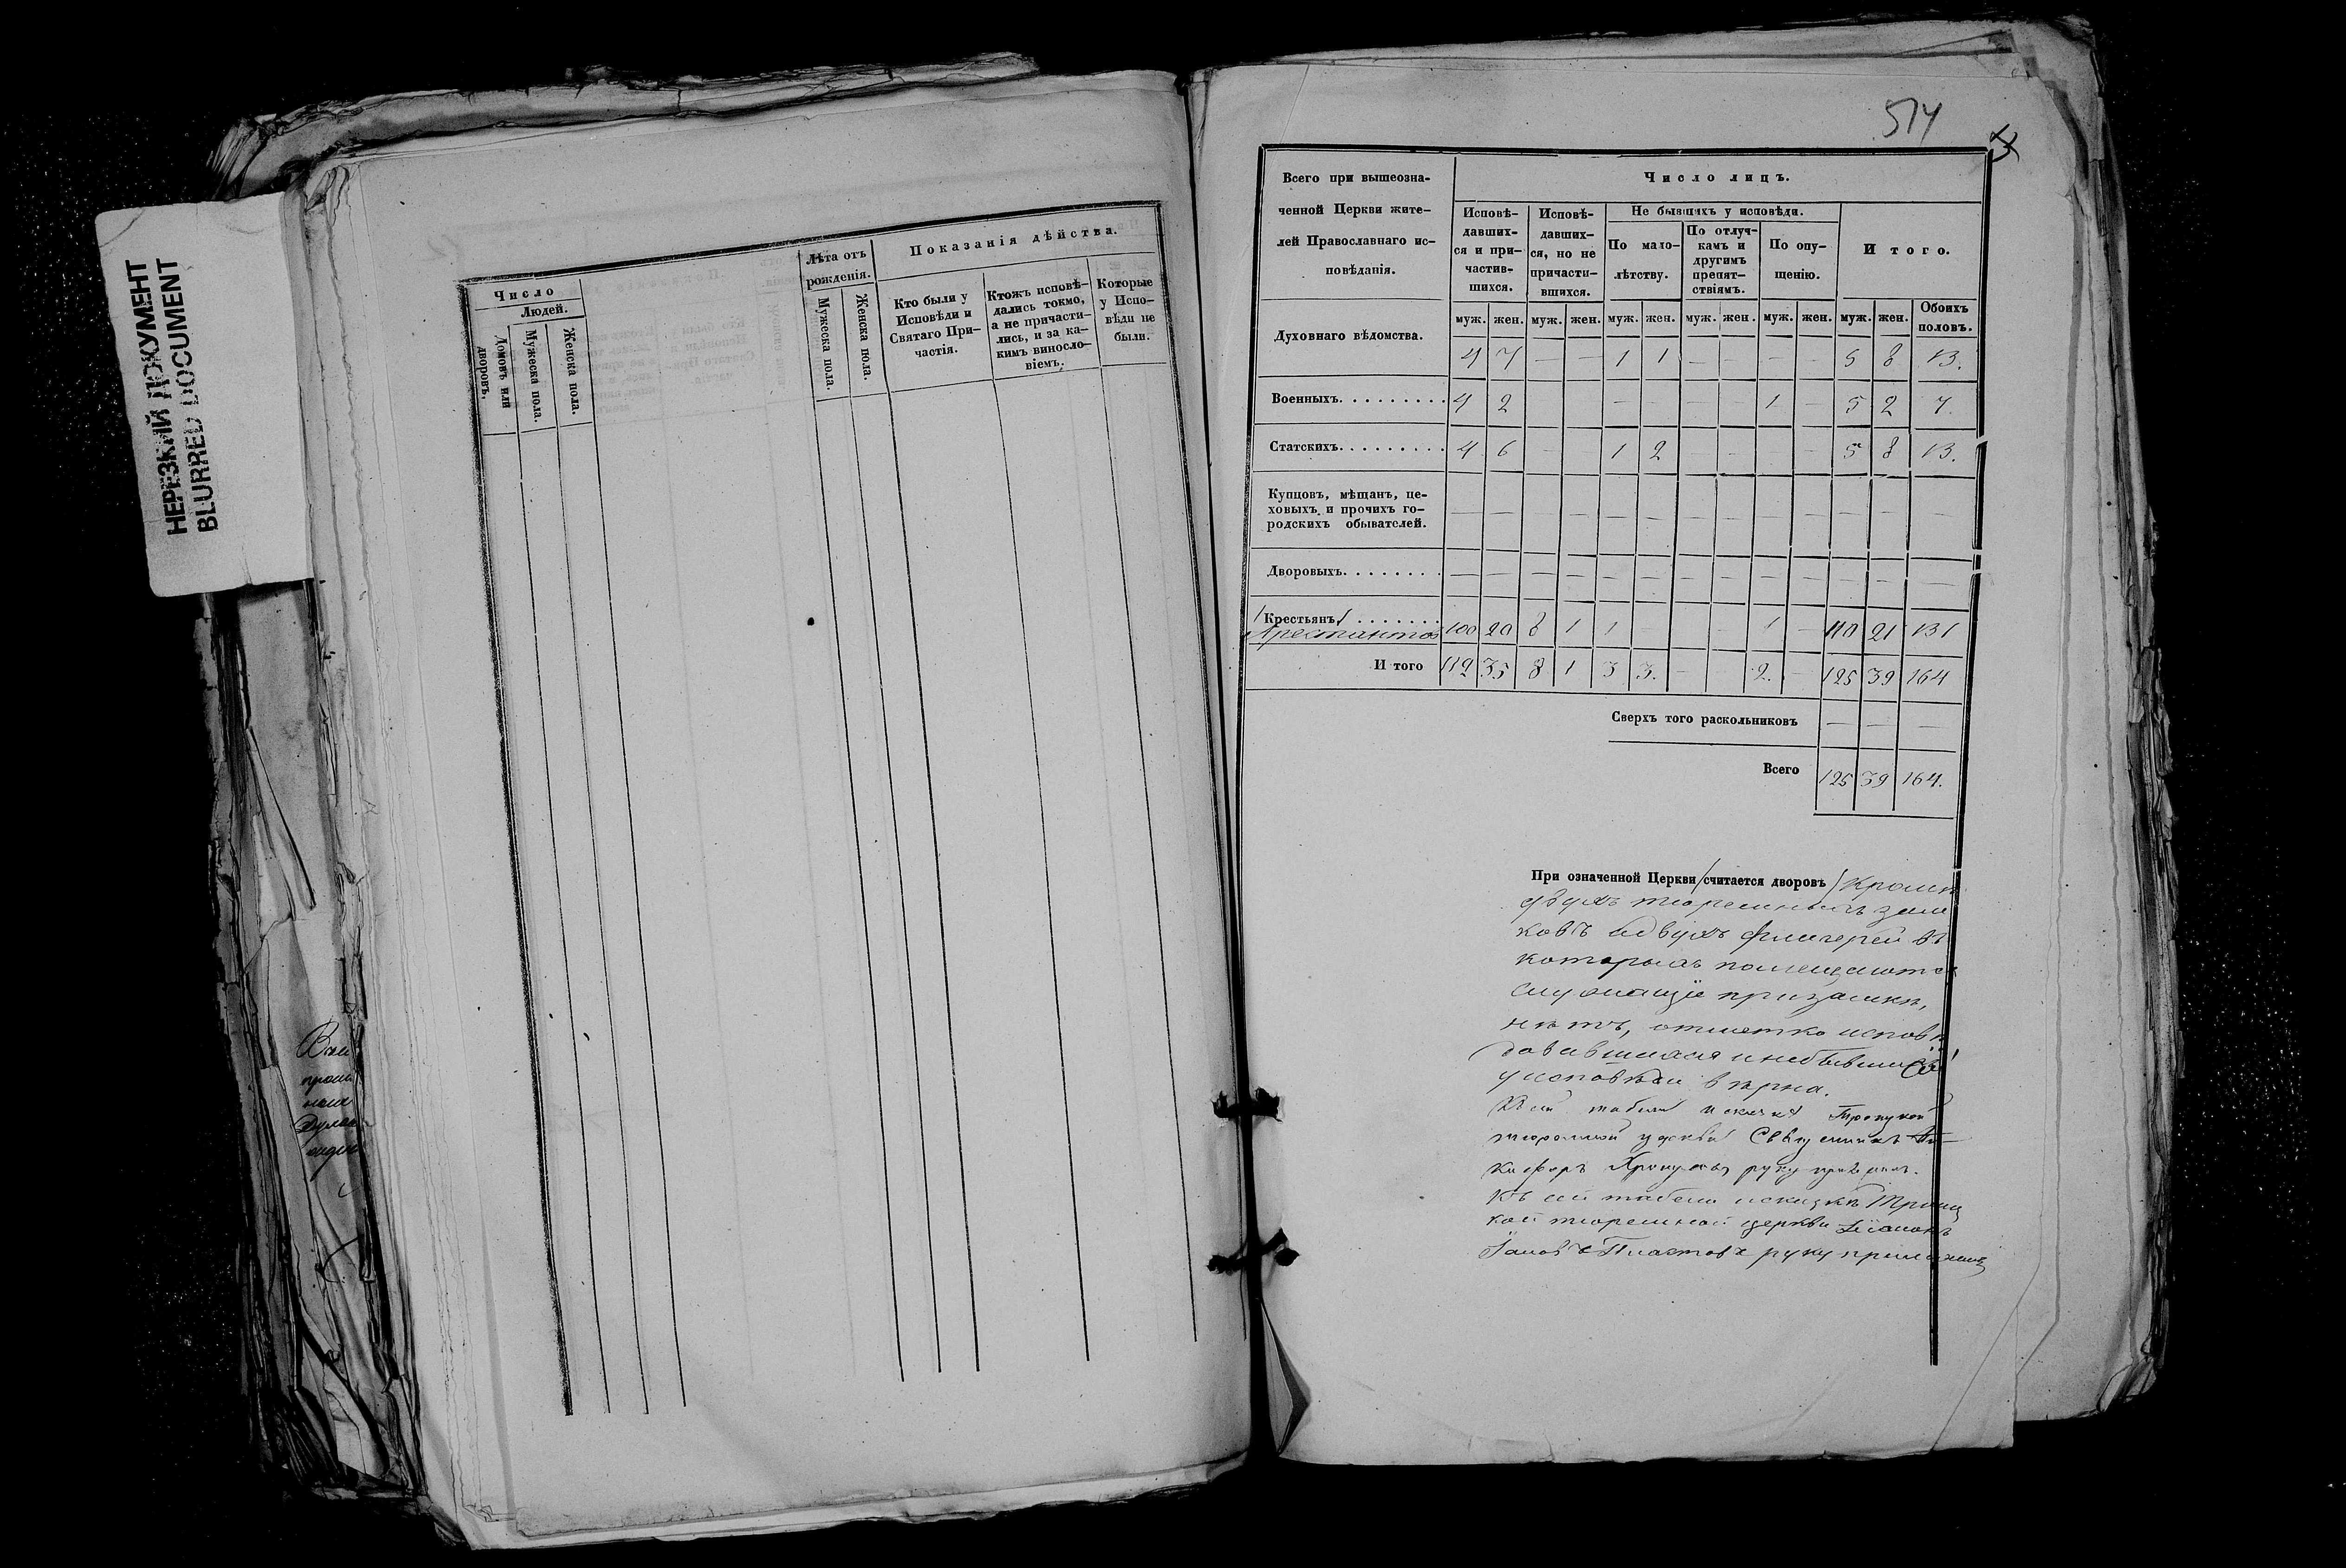 НЕРЕЗКИЙ ДОКУМЕНТ
BLURRED DOCUMENT
Число
Людей.
Домовъ или дворовъ.
Мужеска пола.
Женска пола.
Лѣта отъ рожденія.
Мужеска пола.
Женска пола.
Показанія дѣйства.
Кто были у Исповѣди и Святаго При-
частія.
Ктожъ исповѣ-
дались токмо,
а не причасти-
лись, и за ка-
кимъ виносло-
віемъ.
Которые
у Испо-
вѣди не
были.
514
Всего при вышеозна-
ченной Церкви жите-
лей Православнаго ис-
повѣданія.
Число лицъ.
Исповѣ-
давших-
ся и при-
частив-
шихся.
Исповѣ-
давших-
ся, но не
причасти-
вшихся.
Не бывшихъ у исповѣди.
По мало-
лѣтству.
По отлуч-
камъ и
другимъ
препят-
ствіямъ.
По опу-
щенію.
Итого.
муж. жен. муж. жен. муж. жен. муж. жен. муж. жен. муж. жен. Обоихъ половъ.
Духовнаго вѣдомства. 4 7 — — 1 1 — — — — 5 8 13.
Военныхъ. 4 2 — — 1 — 5 2 7.
Статскихъ. 4 6 — — 1 2 — — — — 5 8 13.
Купцовъ, мѣщанъ, це-
ховыхъ и прочихъ го-
родскихъ обывателей. — — — — — — — — — — — — —
Дворовыхъ. — — — — — — — — — — — — —
/Крестьянъ/
Арестантовъ 100 20 8 1 1 — — 1 — 110 21 131
И того 112 35 8 1 3 3. — — 2. — 125 39 164
Сверхъ того раскольниковъ — — —
Всего 125 39 164.
При означенной Церкви /считается дворовъ/ кромѣ
двухъ тюремныхъ зам
ковъ и двухъ флигерей въ
которыхъ помещаются
служащіе при замкѣ,
нѣтъ, отметка исповѣ
довавшихся и небывши
у исповѣди вѣрна.
тюремной церкви Священникъ
руку приложилъ.
Къ сей табели и сказкѣ Троиц
кой тюремной церкви Діаконъ
Платовъ руку приложилъ